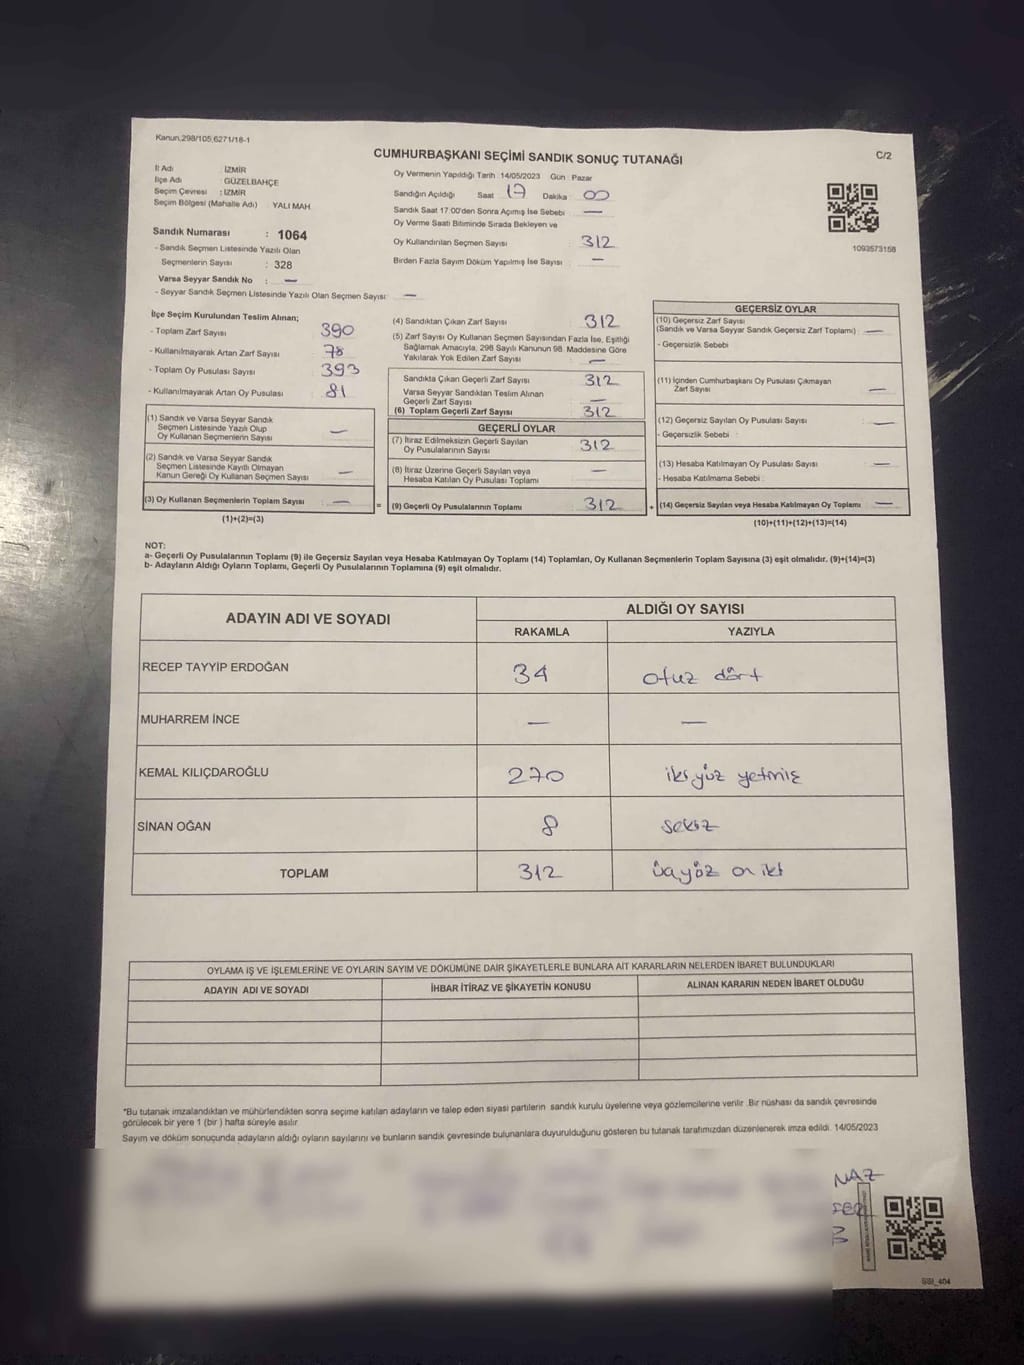 Kanun.298/105,6271/18-1
CUMHURBAŞKANI SEÇİMİ SANDIK SONUÇ TUTANAĞI
C/2
İl Adı : İZMİR
İlçe Adı : GÜZELBAHÇE
Seçim Çevresi : İZMİR
Seçim Bölgesi (Mahalle Adı) : YALI MAH.
Sandık Numarası : 1064
- Sandık Seçmen Listesinde Yazılı Olan
Seçmenlerin Sayısı : 328
Varsa Seyyar Sandık No : —
- Seyyar Sandık Seçmen Listesinde Yazılı Olan Seçmen Sayısı: —
Oy Vermenin Yapıldığı Tarih : 14/05/2023 Gün : Pazar
Sandığın Açıldığı Saat 17 Dakika : 00
Sandık Saat 17:00'den Sonra Açımış İse Sebebi : —
Oy Verme Saati Bitiminde Sırada Bekleyen ve
Oy Kullandırılan Seçmen Sayısı : 312
Birden Fazla Sayım Döküm Yapılmış İse Sayısı : —
1093573158
İlçe Seçim Kurulundan Teslim Alınan;
- Toplam Zarf Sayısı : 390
- Kullanılmayarak Artan Zarf Sayısı : 78
- Toplam Oy Pusulası Sayısı : 393
- Kullanılmayarak Artan Oy Pusulası : 81
(1) Sandık ve Varsa Seyyar Sandık
Seçmen Listesinde Yazılı Olup
Oy Kullanan Seçmenlerin Sayısı : —
(2) Sandık ve Varsa Seyyar Sandık
Seçmen Listesinde Kayıtlı Olmayan
Kanun Gereği Oy Kullanan Seçmen Sayısı : —
(3) Oy Kullanan Seçmenlerin Toplam Sayısı : —
(1)+(2)=(3)
=
(4) Sandıktan Çıkan Zarf Sayısı : 312
(5) Zarf Sayısı Oy Kullanan Seçmen Sayısından Fazla İse, Eşitliği
Sağlamak Amacıyla, 298 Sayılı Kanunun 98. Maddesine Göre
Yakılarak Yok Edilen Zarf Sayısı : —
Sandıkta Çıkan Geçerli Zarf Sayısı : 312
Varsa Seyyar Sandıktan Teslim Alınan
Geçerli Zarf Sayısı : —
(6) Toplam Geçerli Zarf Sayısı : 312
GEÇERLİ OYLAR
(7) İtiraz Edilmeksizin Geçerli Sayılan
Oy Pusulalarının Sayısı : 312
(8) İtiraz Üzerine Geçerli Sayılan veya
Hesaba Katılan Oy Pusulası Toplamı : —
(9) Geçerli Oy Pusulalarının Toplamı : 312
+
GEÇERSİZ OYLAR
(10) Geçersiz Zarf Sayısı
(Sandık ve Varsa Seyyar Sandık Geçersiz Zarf Toplamı) : —
- Geçersizlik Sebebi :
(11) İçinden Cumhurbaşkanı Oy Pusulası Çıkmayan
Zarf Sayısı : —
(12) Geçersiz Sayılan Oy Pusulası Sayısı : —
- Geçersizlik Sebebi :
(13) Hesaba Katılmayan Oy Pusulası Sayısı : —
- Hesaba Katılmama Sebebi :
(14) Geçersiz Sayılan veya Hesaba Katılmayan Oy Toplamı : —
(10)+(11)+(12)+(13)=(14)
NOT:
a- Geçerli Oy Pusulalarının Toplamı (9) ile Geçersiz Sayılan veya Hesaba Katılmayan Oy Toplamı (14) Toplamları, Oy Kullanan Seçmenlerin Toplam Sayısına (3) eşit olmalıdır. (9)+(14)=(3)
b- Adayların Aldığı Oyların Toplamı, Geçerli Oy Pusulalarının Toplamına (9) eşit olmalıdır.
ADAYIN ADI VE SOYADI
ALDIĞI OY SAYISI
RAKAMLA YAZIYLA
RECEP TAYYİP ERDOĞAN 34 otuz dört
MUHARREM İNCE — —
KEMAL KILIÇDAROĞLU 270 iki yüz yetmiş
SİNAN OĞAN 8 sekiz
TOPLAM 312 üçyüz on iki
OYLAMA İŞ VE İŞLEMLERİNE VE OYLARIN SAYIM VE DÖKÜMÜNE DAİR ŞİKAYETLERLE BUNLARA AİT KARARLARIN NELERDEN İBARET BULUNDUKLARI
ADAYIN ADI VE SOYADI İHBAR İTİRAZ VE ŞİKAYETİN KONUSU ALINAN KARARIN NEDEN İBARET OLDUĞU
*Bu tutanak imzalandıktan ve mühürlendikten sonra seçime katılan adayların ve talep eden siyasi partilerin sandık kurulu üyelerine veya gözlemcilerine verilir .Bir nüshası da sandık çevresinde
görülecek bir yere 1 (bir ) hafta süreyle asılır
Sayım ve döküm sonucunda adayların aldığı oyların sayılarını ve bunların sandık çevresinde bulunanlara duyurulduğunu gösteren bu tutanak tarafımızdan düzenlenerek imza edildi. 14/05/2023
NAZ
SSI_404